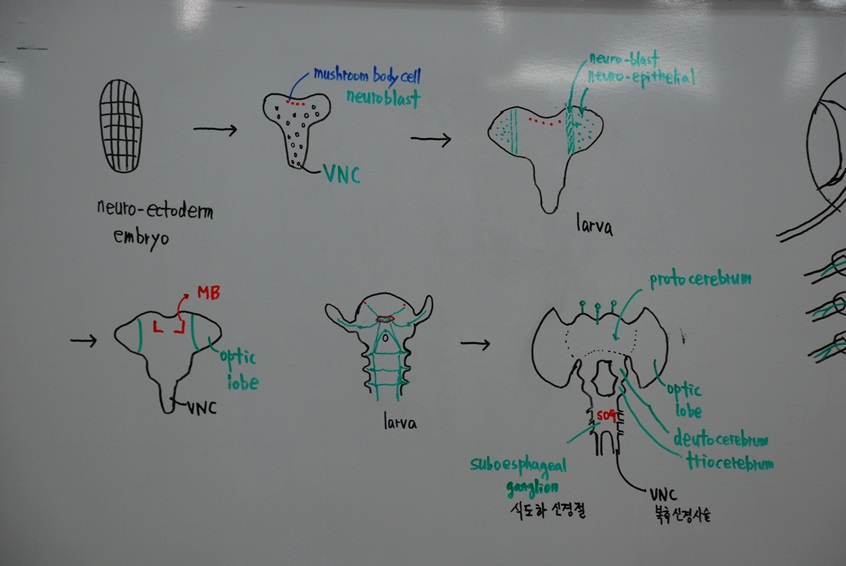 neuro-ectoderm
embryo
mushroom body cell
neuroblast
VNC
neuro-blast
neuro-epithelial
larva
MB
optic
lobe
VNC
larva
protocerebrum
optic
lobe
deutocerebrum
triocerebrum
SOG
suboesphageal
ganglion
식도하 신경절
VNC
복측신경사슬